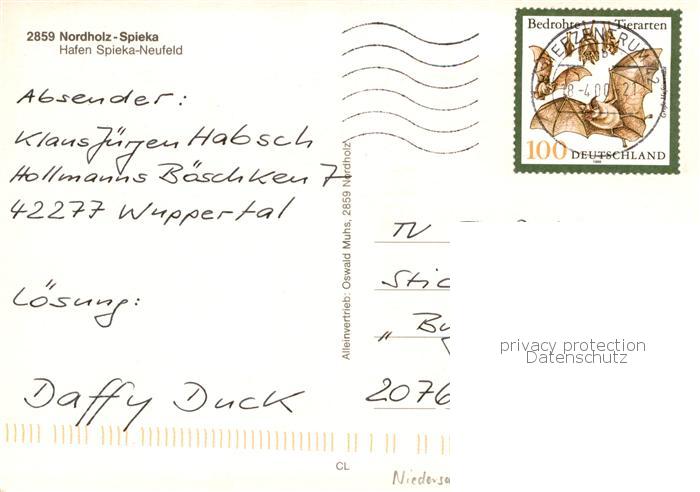 2859 Nordholz-Spieka
Hafen Spieka-Neufeld
Absender:
Klaus Jürgen Habsch
Hollmanns Böschken 7
42277 Wuppertal
Lösung:
Daffy Duck
Alleinvertrieb: Oswald Muhs, 2859 Nordholz
CL
Bedrohte Tierarten
BRIEFZENTRUM 42
8-4.00-21
100 DEUTSCHLAND
TV
Stic
„Bu
2076
privacy protection
Datenschutz
Niedersa